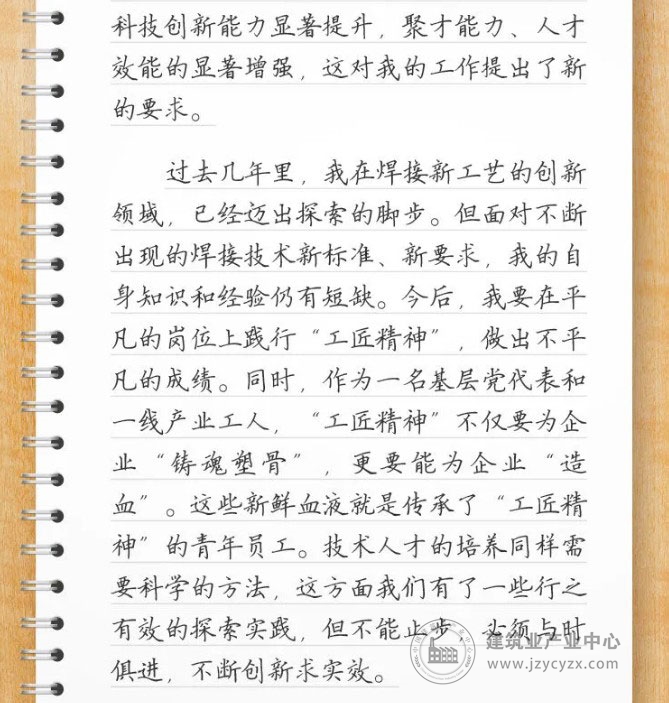 科技创新能力显著提升，聚才能力、人才
效能的显著增强，这对我的工作提出了新
的要求。
过去几年里，我在焊接新工艺的创新
领域，已经迈出探索的脚步。但面对不断
出现的焊接技术新标准、新要求，我的自
身知识和经验仍有短缺。今后，我要在平
凡的岗位上践行“工匠精神”，做出不平
凡的成绩。同时，作为一名基层党代表和
一线产业工人，“工匠精神”不仅要为企
业“铸魂塑骨”，更要能为企业“造
血”。这些新鲜血液就是传承了“工匠精
神”的青年员工。技术人才的培养同样需
要科学的方法，这方面我们有了一些行之
有效的探索实践，但不能止步，必须与时
俱进，不断创新求实效。
建筑业产业中心
www.jzycyzx.com